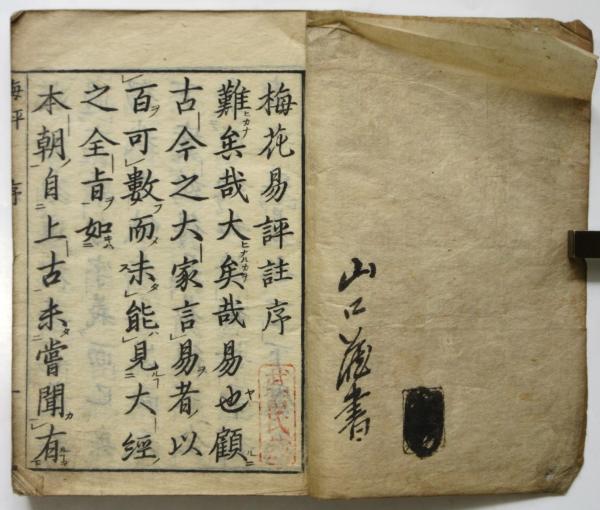 山口蔵書
梅花易評註序
難矣哉大矣哉易也顧
古今之大家言易者以
百可數而未能見大經
之全旨如
本朝自上古未嘗聞有
梅評 序